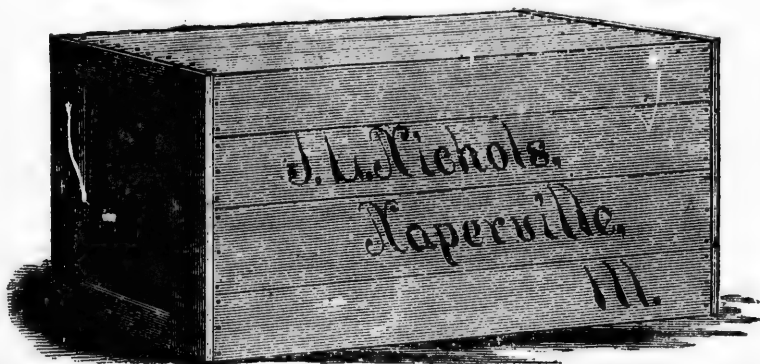 J. L. Nichols.
Naperville.
Ill.